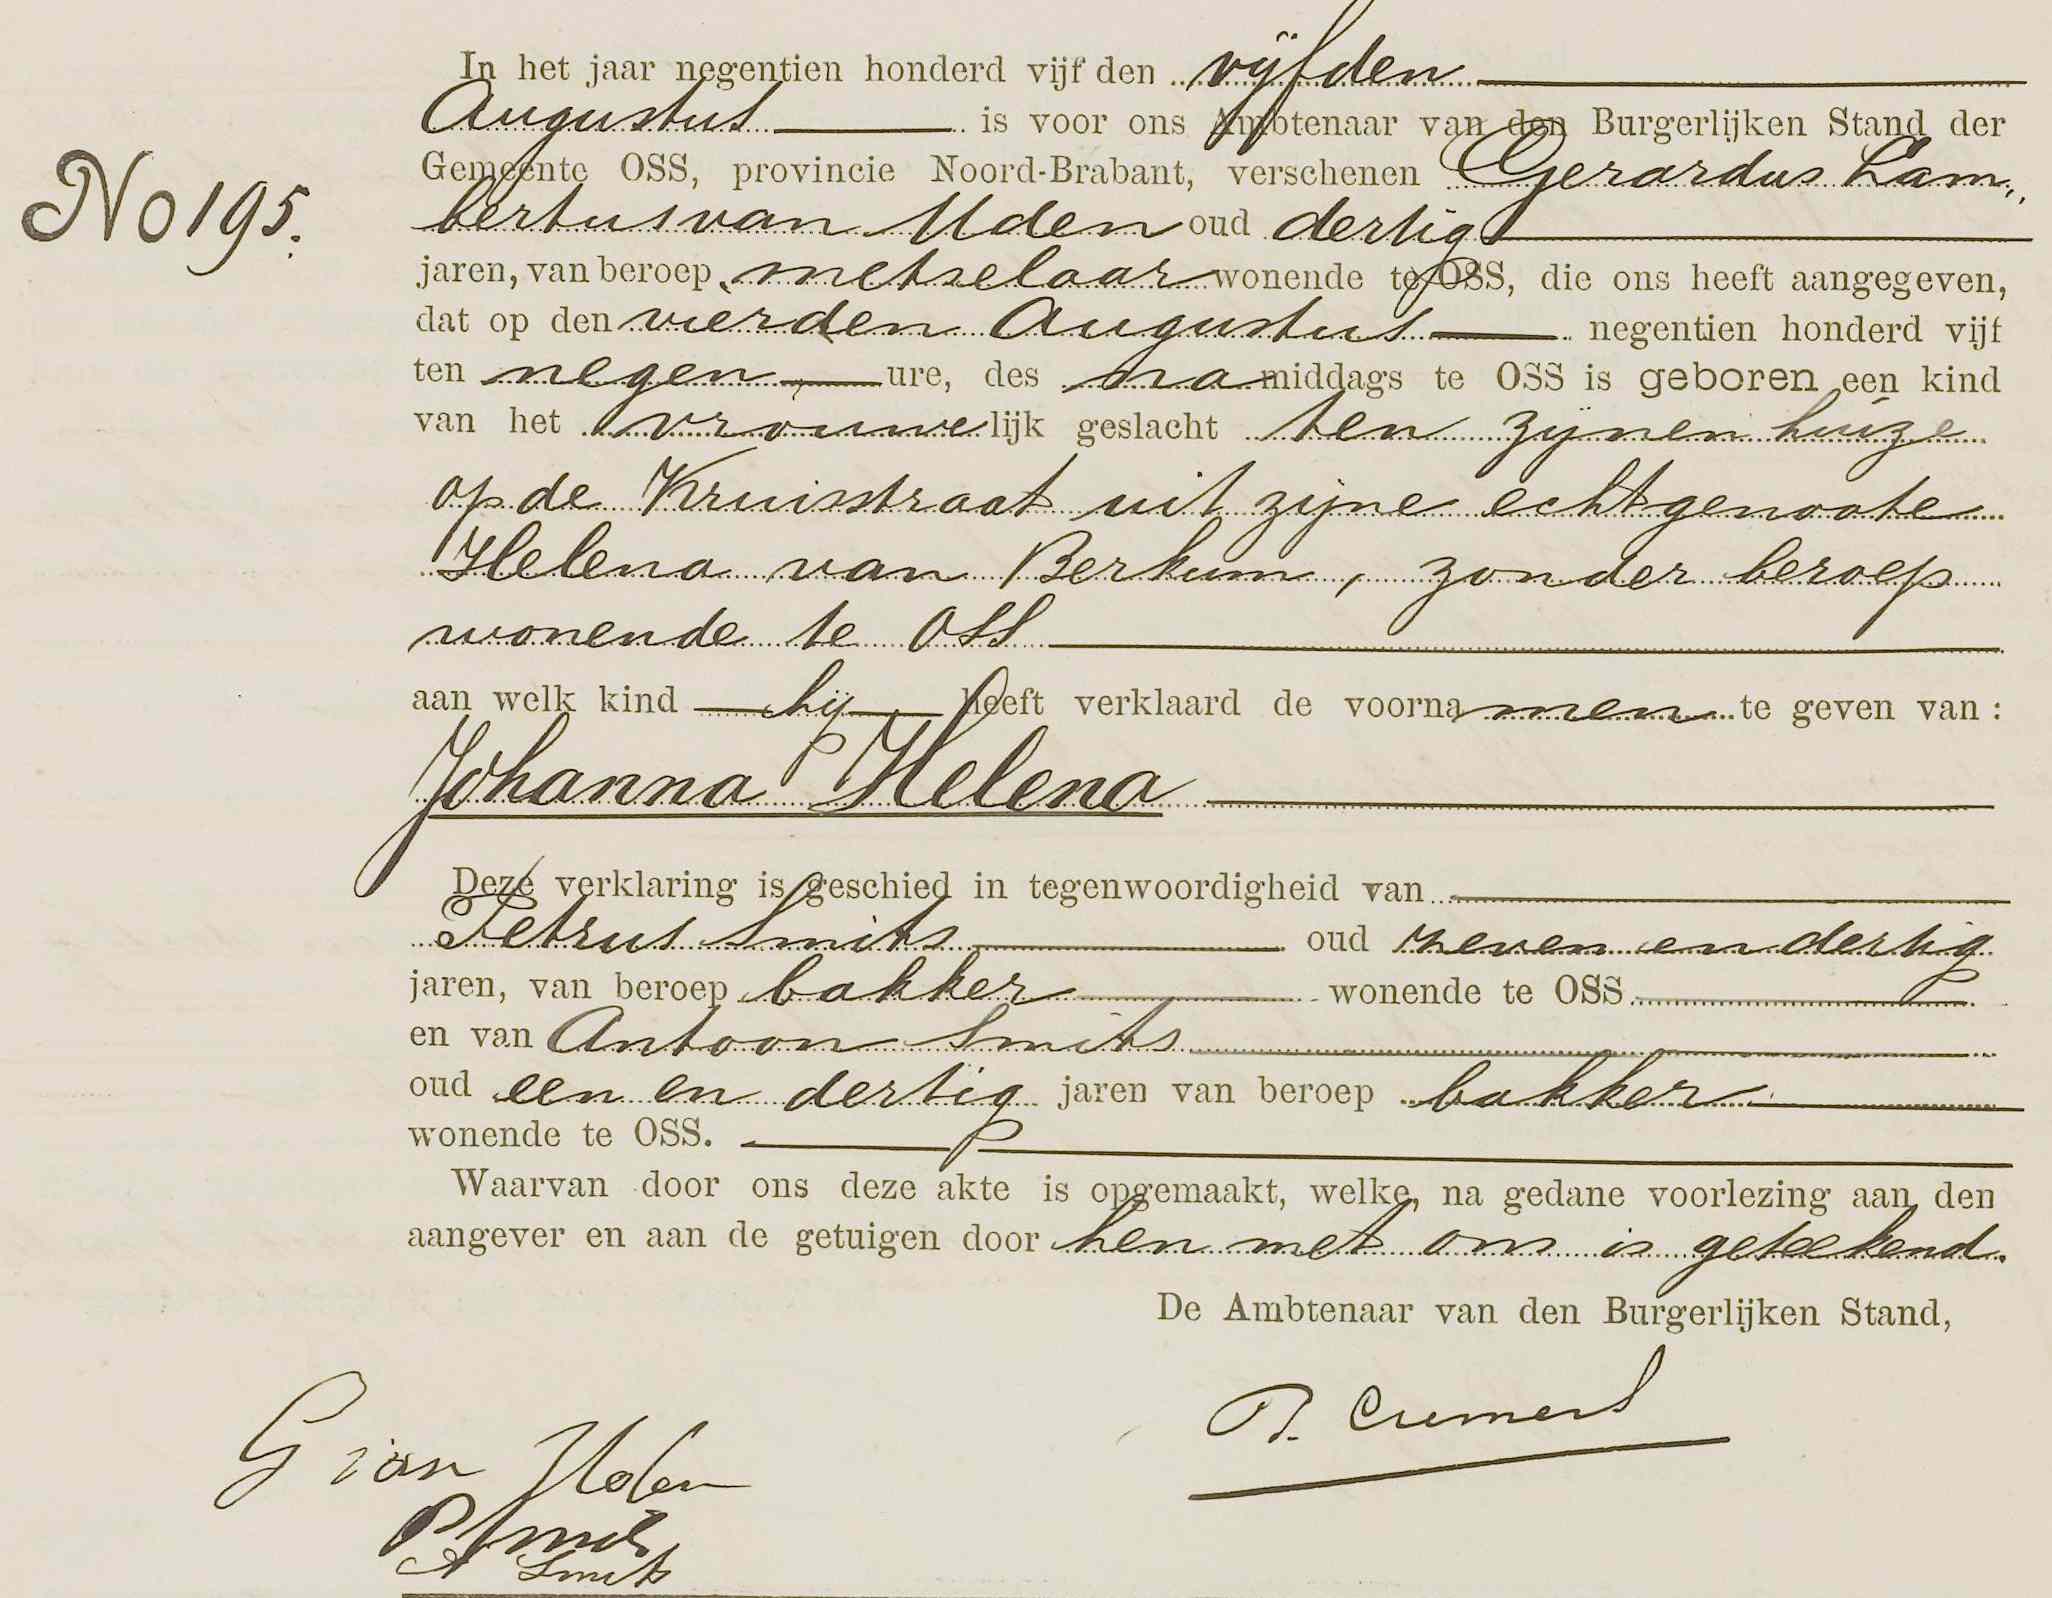 In het jaar negentien honderd vijf den vijfden
Augustus is voor ons Ambtenaar van den Burgerlijken Stand der
No 195.
Gemeente OSS, provincie Noord-Brabant, verschenen Gerardus Lam„
bertus van Uden oud dertig
jaren, van beroep metselaar wonende te OSS, die ons heeft aangegeven,
dat op den vierden Augustus negentien honderd vijf
ten negen ure, des namiddags te OSS is geboren een kind
van het vrouwelijk geslacht ten zijnen huize
op de Kruisstraat uit zijne echtgenoote
Helena van Berkum, zonder beroep
wonende te Oss
aan welk kind hij heeft verklaard de voornamen te geven van :
Johanna Helena
Deze verklaring is geschied in tegenwoordigheid van
Petrus Smits oud zeven en dertig
jaren, van beroep bakker wonende te OSS
en van Antoon Smits
oud een en dertig jaren van beroep bakker
wonende te OSS.
Waarvan door ons deze akte is opgemaakt, welke, na gedane voorlezing aan den
aangever en aan de getuigen door hen met ons is geteekend.
De Ambtenaar van den Burgerlijken Stand,
G van Uden
P Smits
A Smits